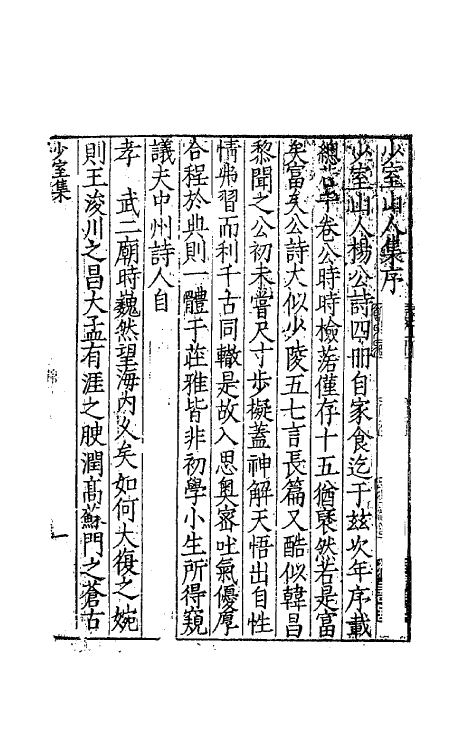 少室山人集序
少室山人楊公詩四冊自家食迄于茲次年序載
總 卷公時時檢若僅存十五猶裒然若是富
矣富矣公詩大似少陵五七言長篇又酷似韓昌
黎聞之公初未嘗尺寸步擬蓋神解天悟出自性
情弗習而利千古同轍是故入思奧密吐氣優厚
合程於典則一體于莊雅皆非初學小生所得窺
議夫中州詩人自
孝　武二廟時巍然望海內久矣如何大復之婉
則王浚川之昌大孟有涯之腴潤高蘇門之蒼古
少室集
一